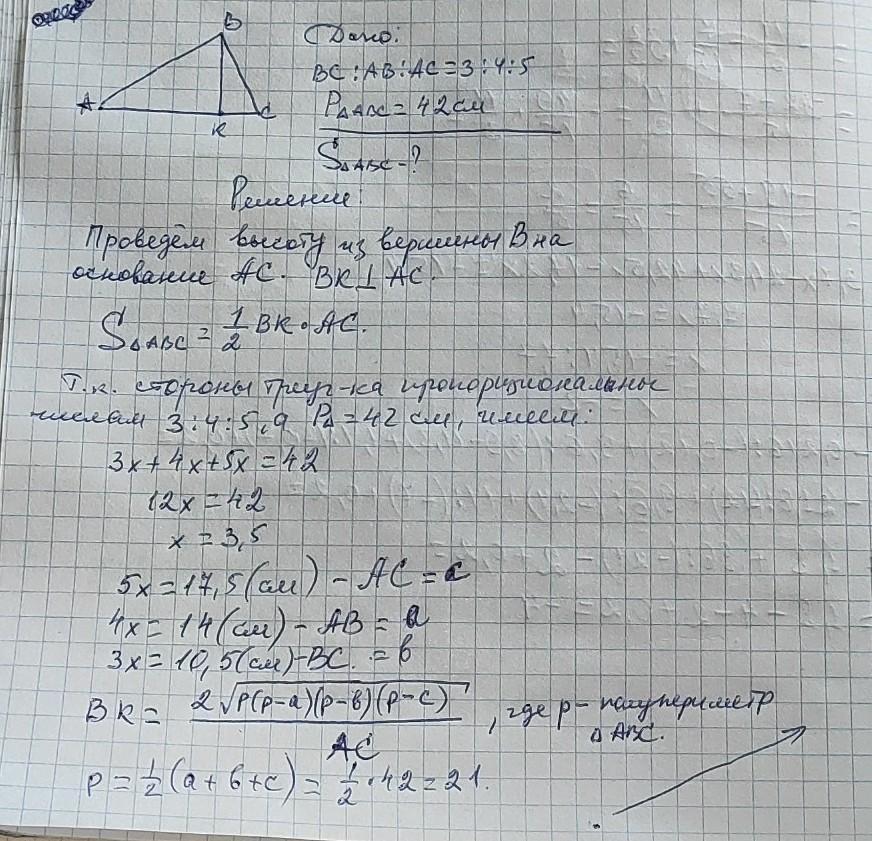 B
A
K
C
Дано:
BC:AB:AC=3:4:5
P△ABC = 42 см
S△ABC - ?
Решение:
Проведём высоту из вершины B на
основание AC. BK⊥AC.
S△ABC = 1/2 BK·AC.
Т.к. стороны треуг-ка пропорциональны
числам 3:4:5, а P△=42 см, имеем:
3x+4x+5x=42
12x=42
x=3,5
5x=17,5(см) - AC = c
4x=14(см) - AB = a
3x=10,5(см)-BC. = в
BK = 2√p(p-a)(p-в)(p-c) / AC, где p - полупериметр
△ABC.
p = 1/2 (a+в+c) = 1/2·42=21.